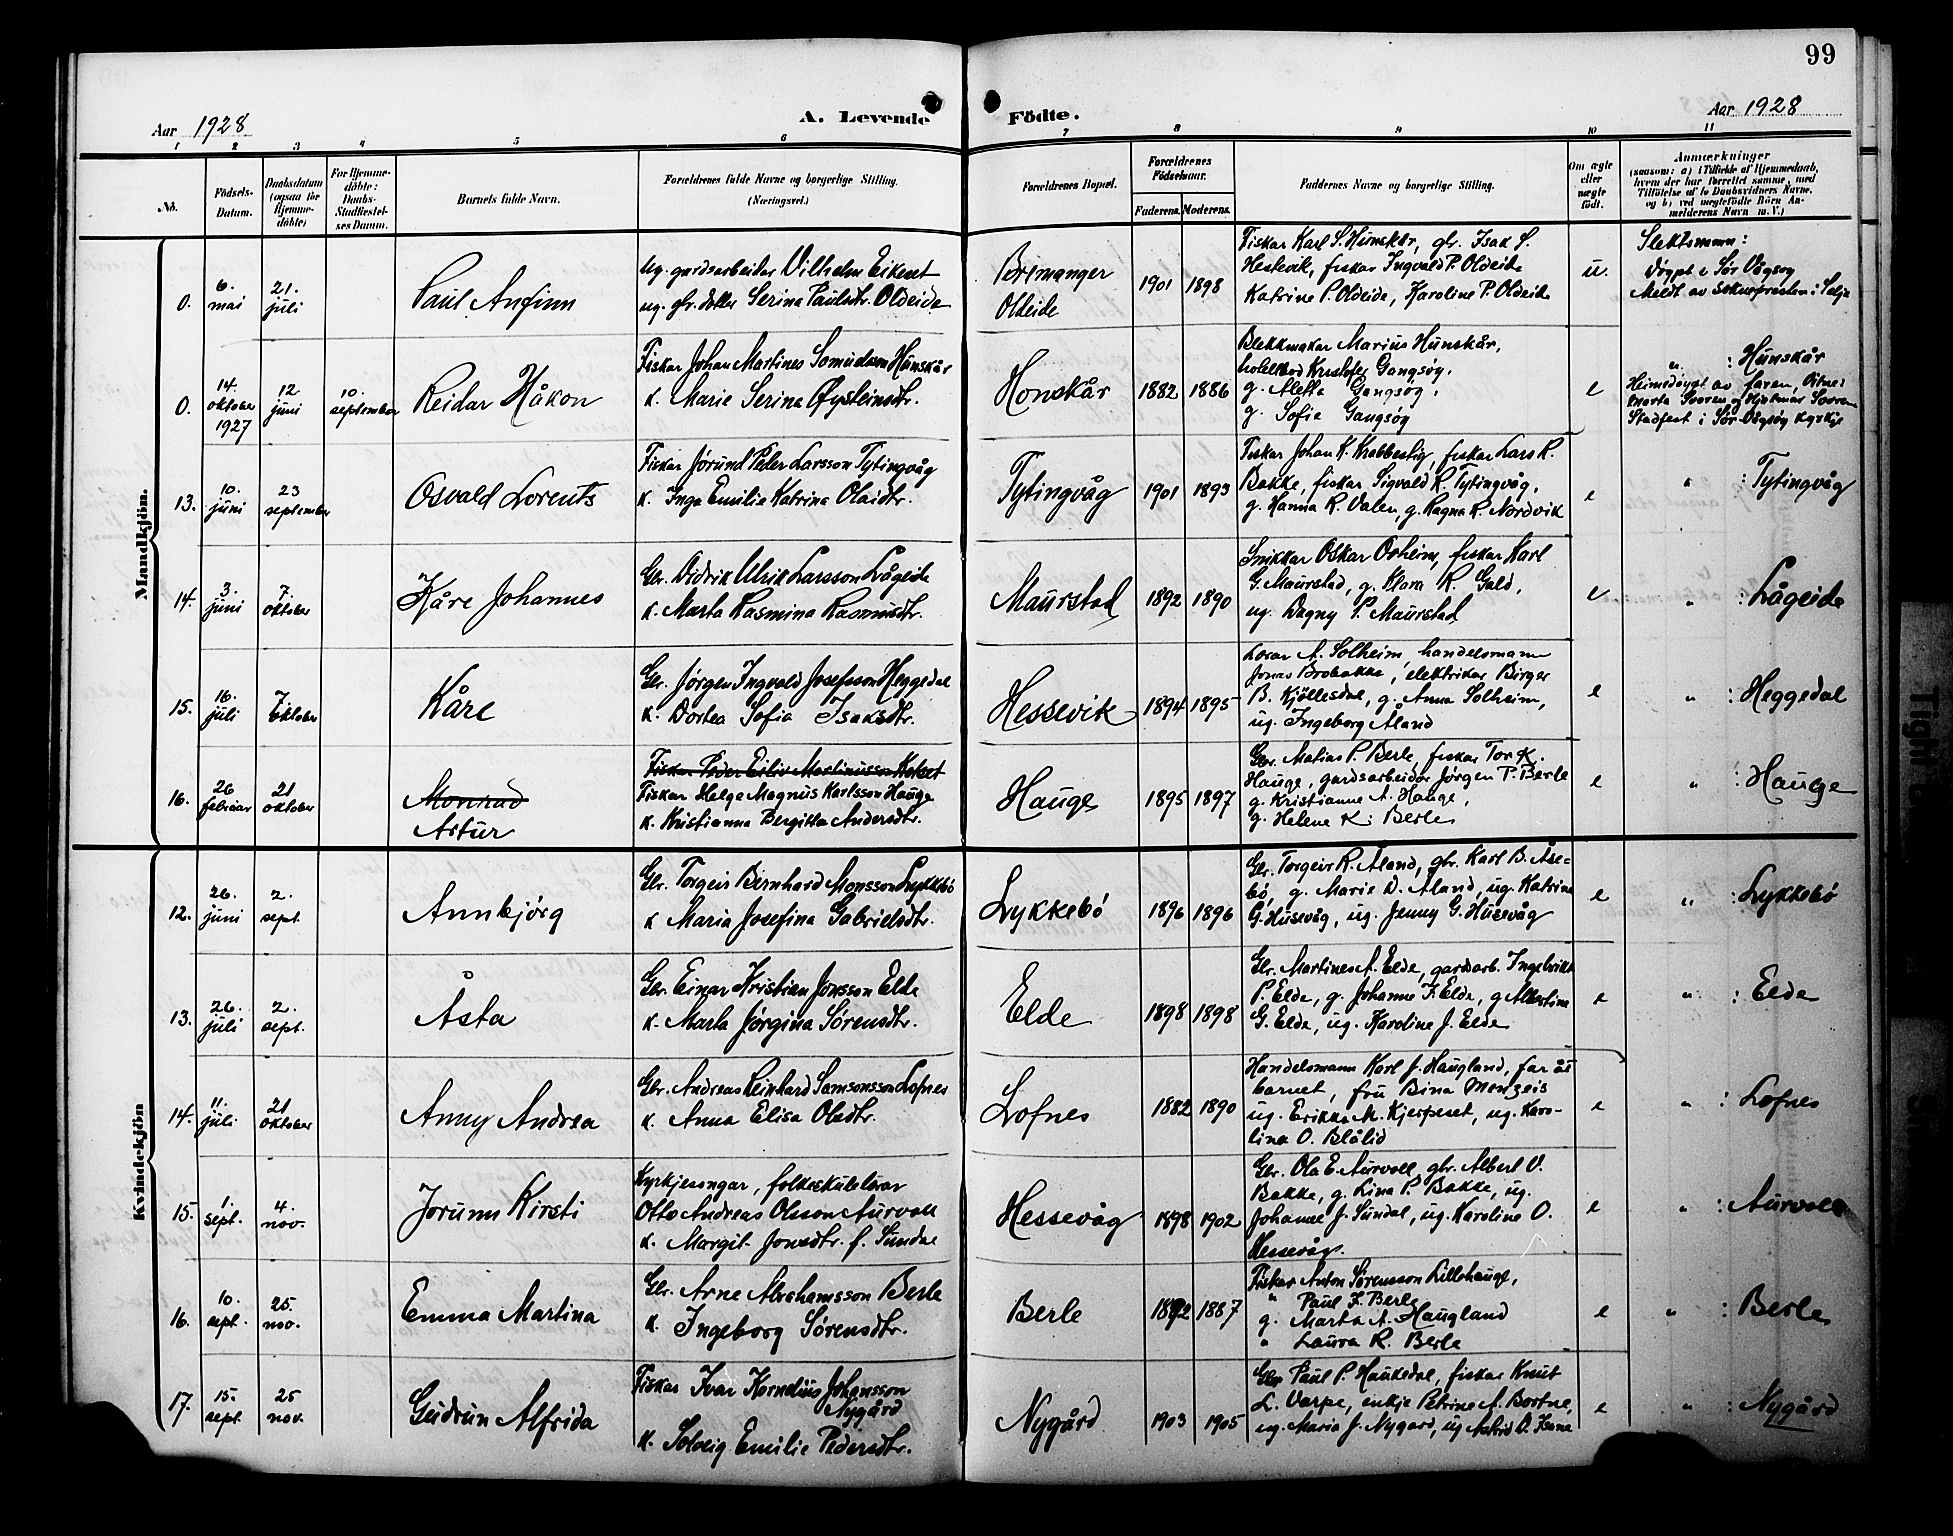 99
Aar 1928
A. Levende
Födte.
Aar 1928
1 2 3 4 5 6 7 8 9 10 11
No.
Födsels-
Datum.
Daabsdatum
(ogsaa for
Hjemme-
döbte)
For Hjemme-
döbte:
Daabs-
Stadfæstel-
ses Datum.
Barnets fulde Navn.
Forældrenes fulde Navne og borgerlige Stilling.
(Næringsvei.)
Forældrenes Bopæl.
Forældrenes
Födselsaar.
Faderens. Moderens.
Faddernes Navne og borgerlige Stilling.
Om ægte
eller
uægte
født.
Anmærkninger
(saasom: a) i Tilfælde af Hjemmedaab,
hvem der har forrettet samme, med
Tilföielse af to Daabsvidners Navne,
og b) ved uægtefödte Börn An-
melderens Navn m. V.)
Mandkjön.
0.
6.
mai
21.
juli
Paul Anfinn
ug. gardsarbeider Vilhelm Eikeset
ug. gbr. dotter Serina Paulsdtr. Oldeide
Bremanger
Oldeide
1901 1898
Fiskar Karl S. Hunskår, gbr. Isak S.
Hestevik, fiskar Ingvald P. Oldeide
Katrine P. Oldeide, Karoline P. Oldeide
u.
Slektsnamn:
Døypt i Sør Vågsøy
Meldt av soknepresten i Selje
0.
14.
oktober
1927
12
juni
10.
september
Reidar Håkon
Fiskar Johan Martines Samuelsson Hunskår
k. Marie Serina Øysteinsdtr.
Honskår
1882 1886
Blekkmakar Marius Hunskår,
Kristofer Gangsøy,
g. Aletta Gangsøy,
g. Sofie Gangsøy
e
" : Hunskår
Heimedøypt av faren, Vitne:
Marta Svoren og Hjalmar Svoren
Stadfest i Sør-Vågsøy kyrkje
13.
10.
juni
23
september
Osvald Lorents
Fiskar Jørund Peder Larsson Tytingvåg
k. Inga Emilie Katrina Olaidtr.
Tytingvåg
1901 1893
Fiskar Johan K. Krabbestig, fiskar Lars R.
Bakke, fiskar Sigvald R. Tytingvåg,
g. Hanna R. Valen, g. Ragna R. Nordvik
e
" : Tytingvåg
14.
3.
juni
7.
oktober
Kåre Johannes
Gbr. Didrik Ulrik Larsson Lågeide
k. Marta Rasmina Rasmusdtr.
Maurstad
1892 1890
Snikkar Oskar Osheim, fiskar Karl
G. Maurstad, g. Klara R. Gald,
ug. Dagny P. Maurstad
e
" : Lågeide
15.
16.
juli
7.
oktober
Kåre
Gbr. Jørgen Ingvald Josefsson Heggedal
k. Dortea Sofia Isaksdtr.
Hessevik
1894 1895
Lærar A. Solheim, handelsmann
Jonas Brobakke, elektriker Birger
B. Kjøllesdal, g. Anna Solheim,
ug. Ingeborg Åland
e
" : Heggedal
16.
26
februar
21
oktober
Monrad
Artur
Fiskar Peder Eiliv Martinusson Kalset
Fiskar Helge Magnus Karlsson Hauge
k. Kristianna Bergitta Andersdtr.
Hauge
1895 1897
Gbr. Matias P. Berle, fiskar Tor K.
Hauge, gardsarbeidar Jørgen P. Berle
g. Kristianne A. Hauge,
g. Helene K. Berle
e
" : Hauge
Kvindekjön
12.
26.
juni
2.
sept.
Annbjørg
Gbr. Torgeir Bernhard Monsson Lykkebø
k Maria Josefina Gabrielsdtr.
Lykkebö
1896 1896
Gbr. Torgeir R. Åland, gbr. Karl B. Åse-
bø, g. Marie D. Åland, ug. Katrine
G. Husevåg, ug. Jenny G. Husevåg
e
" : Lykkebö
13.
26.
juli
2.
sept.
Åsta
Gbr. Einar Kristian Jonsson Elde
k. Marta Jørgina Sørensdtr.
Elde
1898 1898
Gbr. Martines A. Elde, gardsarb. Ingebrikt
P. Elde, g. Johanne F. Elde, g Albertina
G. Elde, ug. Karoline J. Elde
e
" : Elde
14.
11.
juli
21
oktober
Anny Andrea
Gbr. Andreas Leinhard Samsonsson Lofnes
k. Anna Elisa Olsdtr.
Lofnes
1882 1890
Handelsmann Karl J. Haugland, far åt
barnet, fru Bina Menzeis
ug. Erikka M. Kjerpeset, ug. Karo-
lina O. Blålid
e
" : Lofnes
15.
1.
sept.
4.
nov.
Jorunn Kirsti
Kyrkjesongar, folkeskulelærar
Otto Andreas Olsson Aurvoll
k. Margit Jonsdtr. f. Sundal
Hessevåg
1898 1902
Gbr. Ola E. Aurvoll, gbr. Albert V.
Bakke, g. Lina P. Bakke, ug.
Johanne J. Sundal, ug. Karoline O.
Hessevåg.
e
" : Aurvoll
16.
10.
sept.
25.
nov.
Emma Martina
Gbr. Arne Abrahamsson Berle
k. Ingeborg Sørensdtr.
Berle
1892 1887
Fiskar Anton Sørensson Lillehauge,
" Paul F. Berle
g. Marta A. Haugland
" Laura R. Berle
e
" : Berle
17.
15.
sept.
25
nov.
Gudrun Alfrida
Fiskar Ivar Kornelius Johansson
Nygård
k. Solveig Emilie Pedersdtr.
Nygård
1903 1905
Gbr Paul P. Haukedal, fiskar Knut
L. Varpe, enkje Petrine A. Bortne,
ug. Maria J. Nygard, ug Astrid D. Isane
e
" : Nygård